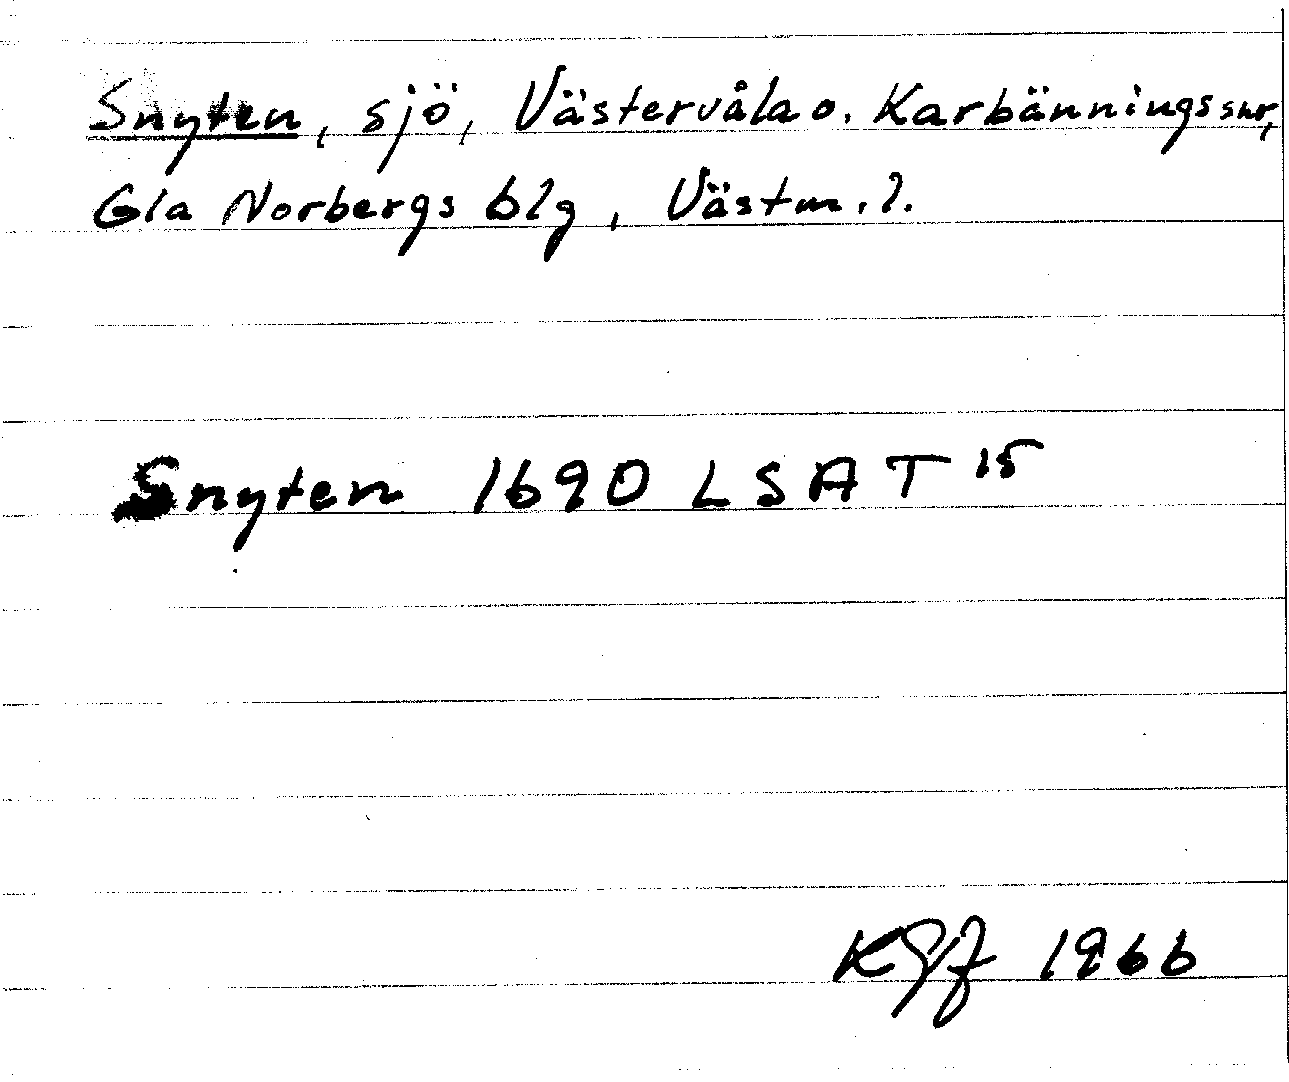 Snyten, sjö, Västervåla o. Karbännings snr,
Gla Norbergs blg, Västm. l.
Snyten 1690 LSA T 15
1966